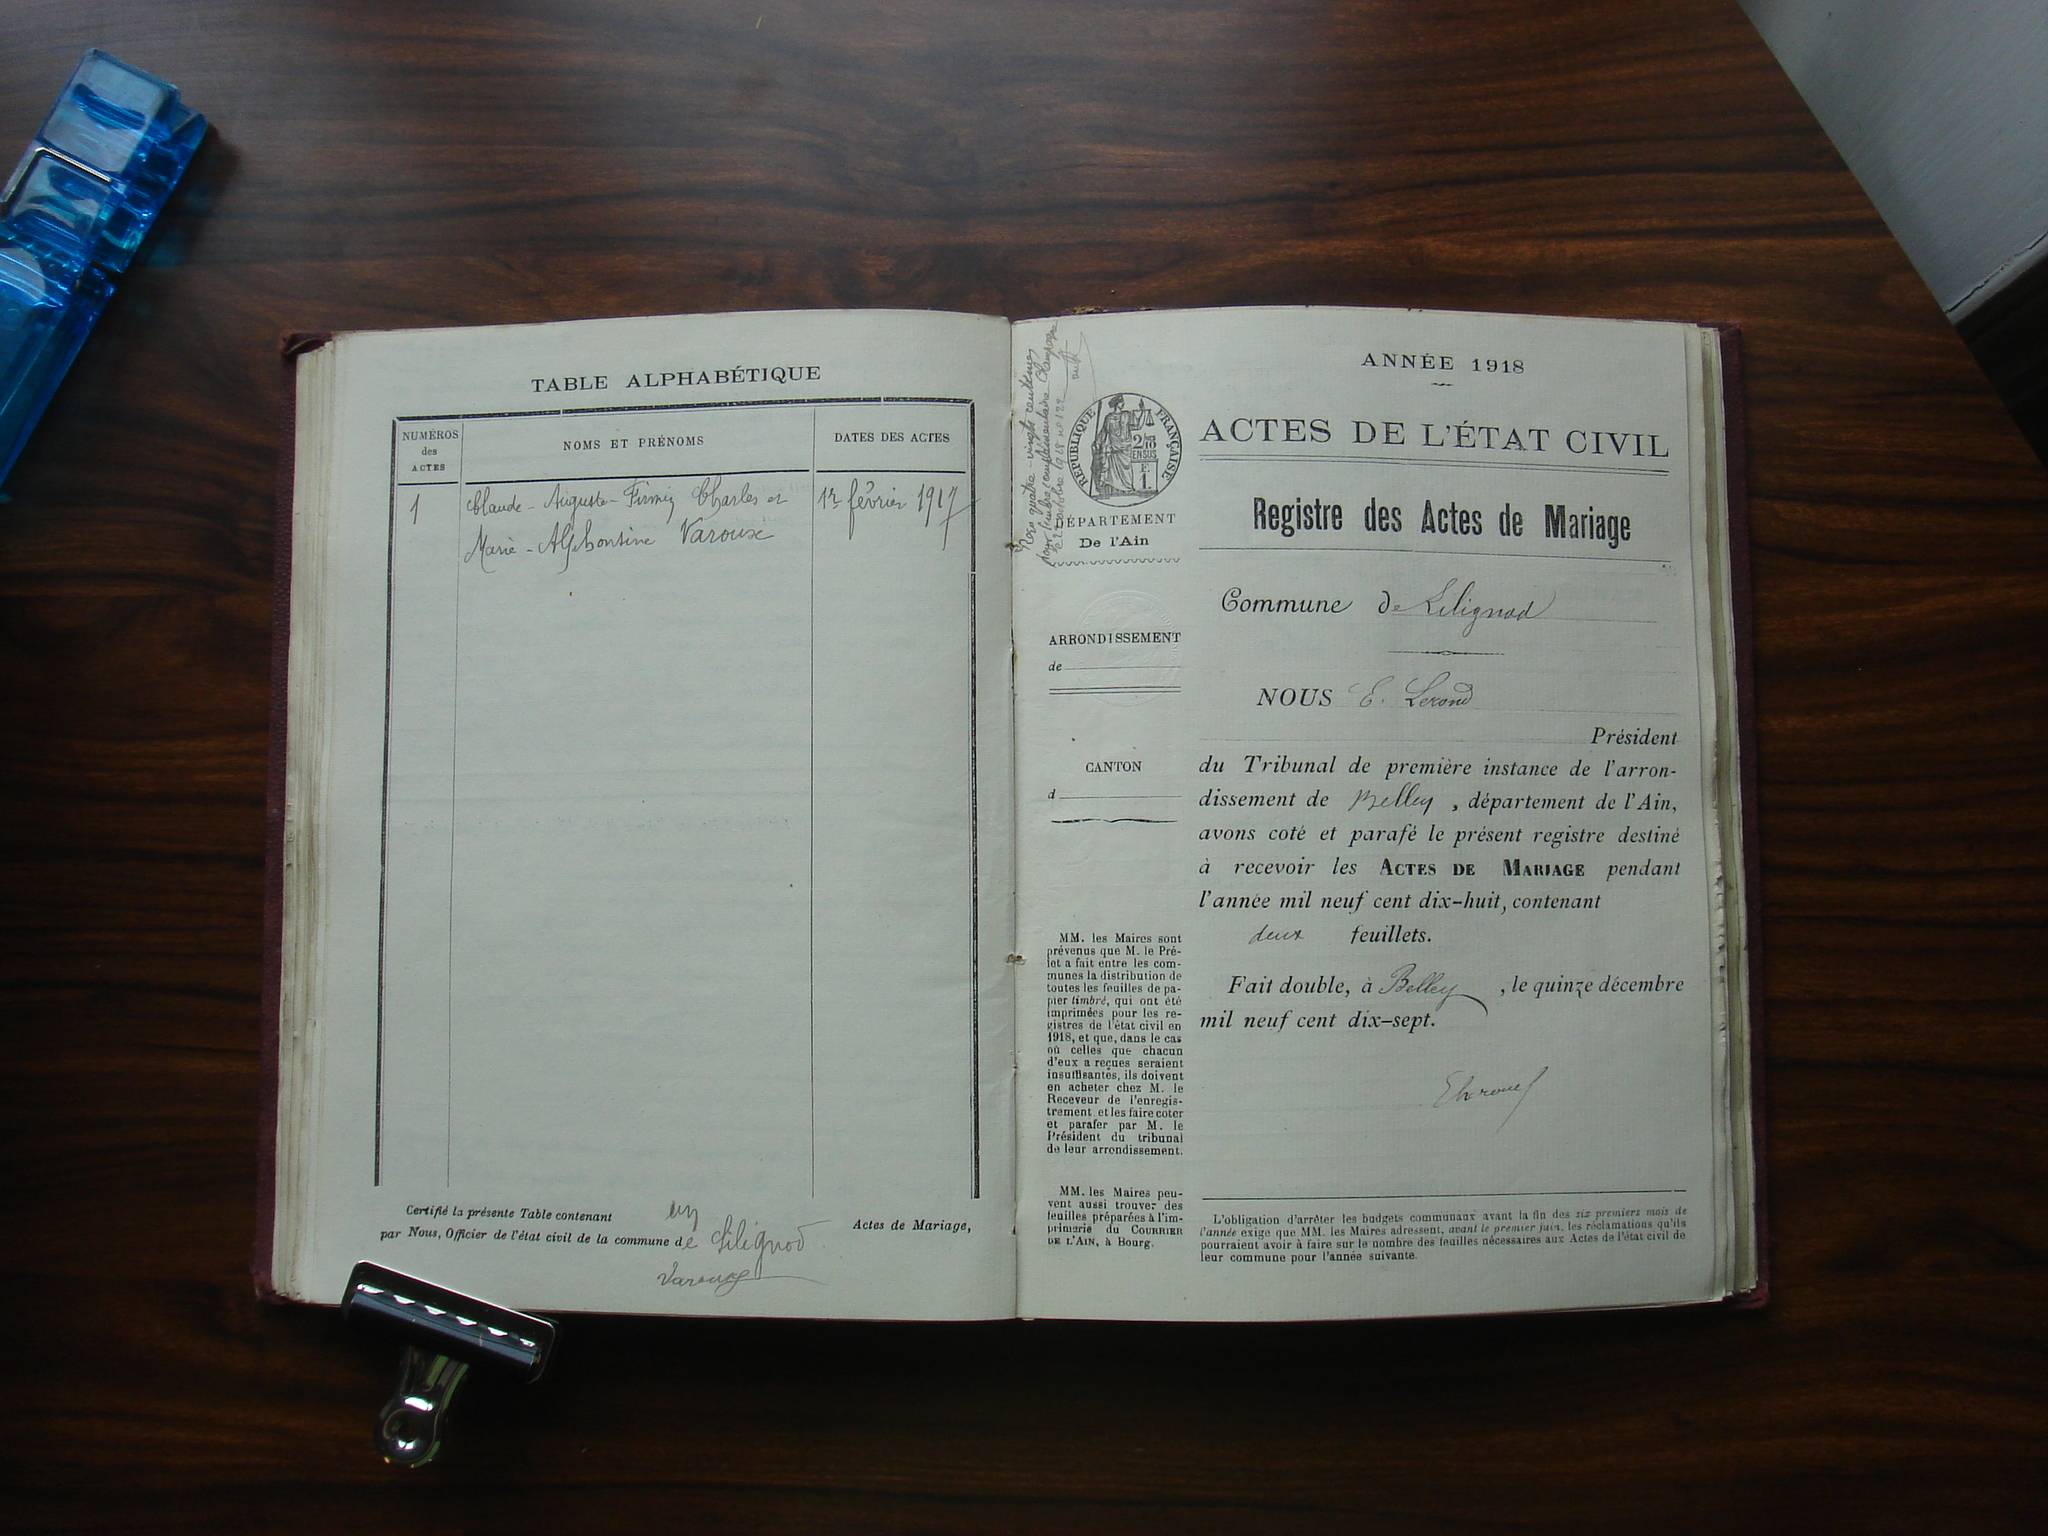 TABLE ALPHABÉTIQUE
NUMÉROS
des
ACTES
NOMS ET PRÉNOMS
DATES DES ACTES
1
Claude - Auguste - Firmin Charles et
1er février 1917
Marie - Alphonsine Varoux
Certifié la présente Table contenant un Actes de Mariage,
par Nous, Officier de l'état civil de la commune de Lilignod
Varoux
Reçu quatre-vingts centimes
pour timbre complémentaire Champagne
le 22 octobre 1918 no 122
RÉPUBLIQUE FRANÇAISE
DÉPARTEMENT
De l'Ain
ARRONDISSEMENT
de
CANTON
d
MM. les Maires sont
prévenus que M. le Pré-
fet a fait entre les com-
munes la distribution de
toutes les feuilles de pa-
pier timbré, qui ont été
imprimées pour les re-
gistres de l'état civil en
1918, et que, dans le cas
où celles que chacun
d'eux a reçues seraient
insuffisantes, ils doivent
en acheter chez M. le
Receveur de l'enregis-
trement et les faire coter
et parafer par M. le
Président du tribunal
de leur arrondissement.
MM. les Maires peu-
vent aussi trouver des
feuilles préparées à l'im-
primerie du COURRIER
DE L'AIN, à Bourg.
ANNÉE 1918
ACTES DE L'ÉTAT CIVIL
Registre des Actes de Mariage
Commune de Lilignod
NOUS E. Lerond
Président
du Tribunal de première instance de l'arron-
dissement de Belley, département de l'Ain,
avons coté et parafé le présent registre destiné
à recevoir les ACTES DE MARIAGE pendant
l'année mil neuf cent dix-huit, contenant
deux feuillets.
Fait double, à Belley, le quinze décembre
mil neuf cent dix-sept.
L'obligation d'arrêter les budgets communaux avant la fin des six premiers mois de
l'année exige que MM. les Maires adressent, avant le premier juin, les réclamations qu'ils
pourraient avoir à faire sur le nombre des feuilles nécessaires aux Actes de l'état civil de
leur commune pour l'année suivante.